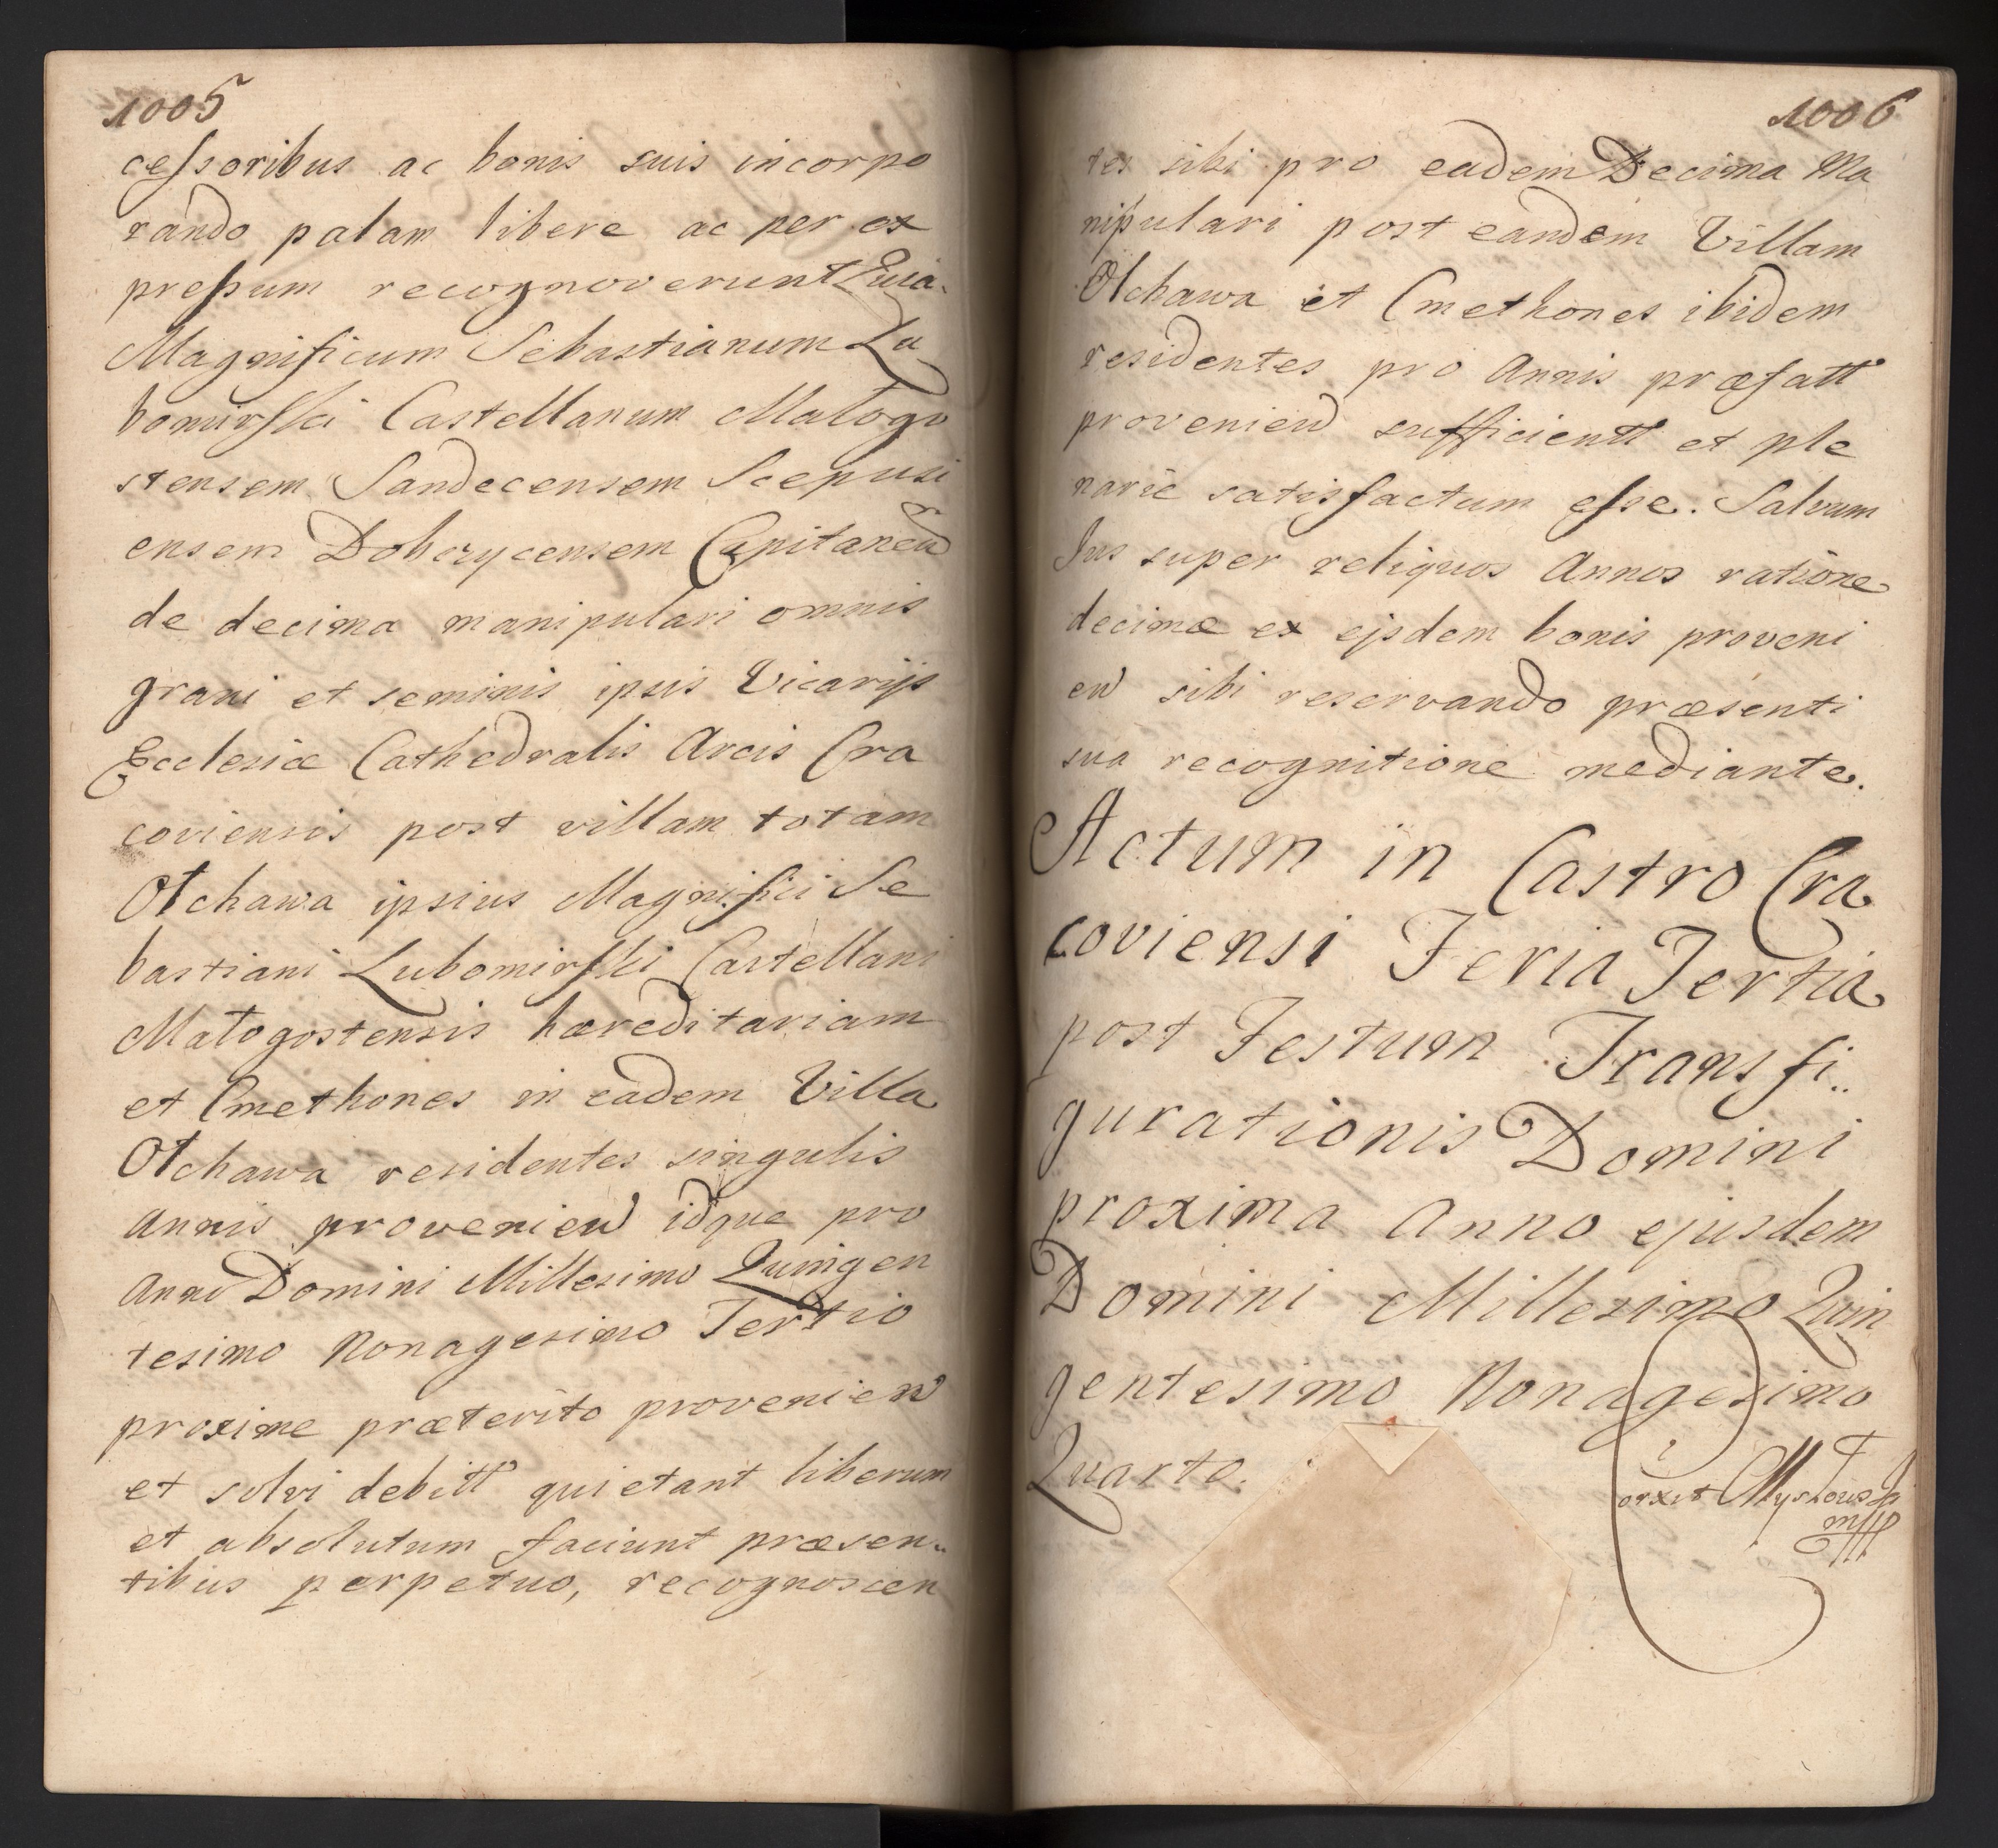 1005
cessoribus ac bonis suis incorpo
rando palam libere ac per ex
pressum recognoverunt Quia
Magnificum Sebastianum Lu
bomirski Castellanum Malogo
stensem Sandecensem Scepusi
ensem Dobczycensem Capitaneu
de decima manipulari omnis
grani et seminis ipsis Vicarijs
Ecclesiæ Cathedralis Arcis Cra
coviensis post villam totam
Olchawa ipsius Magnifici Se
bastiani Lubomirski Castellani
Małogostensis hæreditariam
et Cmethones in eadem Villa
Olchawa residentes singulis
Annis provenien idque pro
Anno Domini Millesimo Quingen
tesimo Nonagesimo Tertio
proxime præterito provenien
et solvi debitt quietant liberum
et absolutum faciunt præsen..
tibus perpetuo, recognoscen
1006
tes sibi pro eadem Decima Ma
nipulari post eandem Villam
Olchawa et Cmethones ibidem
residentes pro Annis præfatt
provenien sufficientt et ple
narie satisfactum esse. Salvum
Jus super reliquos Annos ratione
decimæ ex ejsdem bonis proveni
en sibi reservando præsenti
sua recognitione mediante.
Actum in Castro Cra
coviensi Feria Tertia
post Festum Transfi..
gurationis Domini
proxima Anno ejusdem
Domini Millesimo Quin
gentesimo Nonagesimo
Quarto.